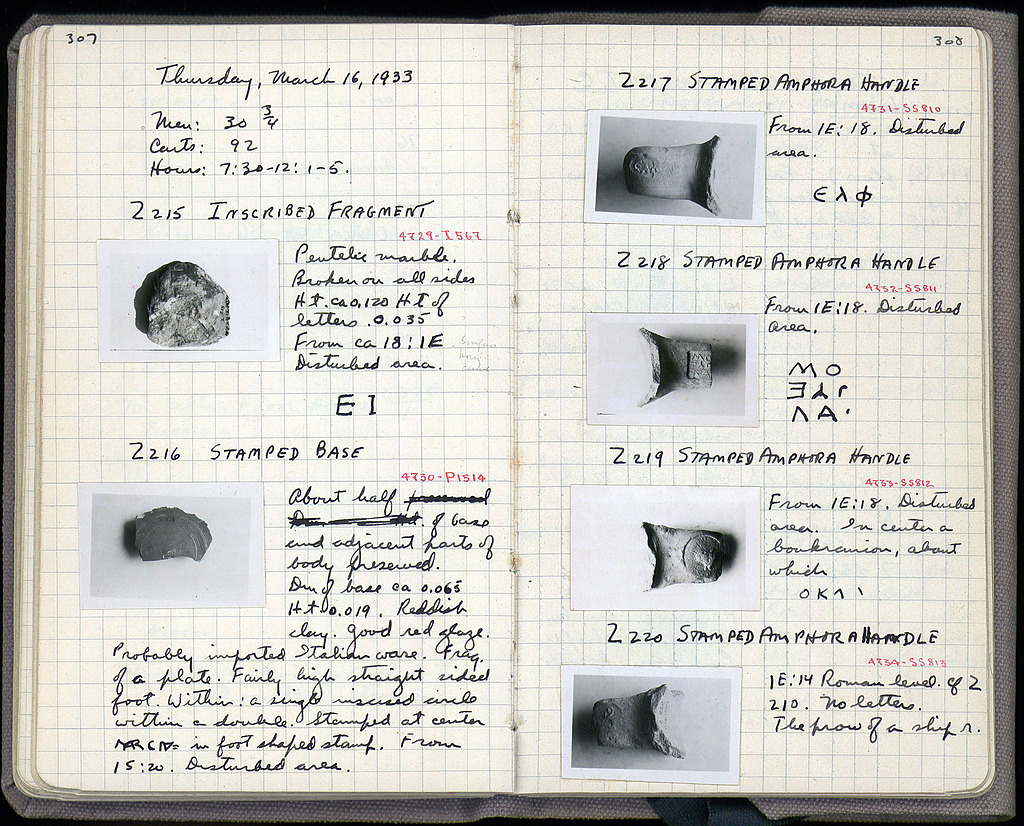 307
Thursday, March 16, 1933
Men: 30 3/4
Carts: 92
Hours: 7:30-12: 1-5.
Z215 INSCRIBED FRAGMENT
4729-I567
Pentelic marble.
Broken on all sides
Ht. ca 0.120 Ht of
letters .0.035
From ca 18:1E
Disturbed area.
EI
Z216 STAMPED BASE
4730-P1514
About half preserved
of base
and adjacent parts of
body preserved.
Dm of base ca 0.065
Ht 0.019. Reddish
clay. Good red glaze.
Probably imported Italian ware. Frag.
of a plate. Fairly high straight sided
foot. Within: a single incised circle
within a double. Stamped at center
in foot shaped stamp. From
15:20. Disturbed area.
308
Z217 STAMPED AMPHORA HANDLE
4731-SS810
From 1E:18. Disturbed
area.
ϵλϕ
Z218 STAMPED AMPHORA HANDLE
4732-SS811
From 1E:18. Disturbed
area.
Z219 STAMPED AMPHORA HANDLE
4733-SS812
From 1E:18. Disturbed
area. In center a
boukranion, about
which
Z220 STAMPED AMPHORA HANDLE
4734-SS813
1E:14 Roman level. cf Z
210. No letters.
The prow of a ship r.